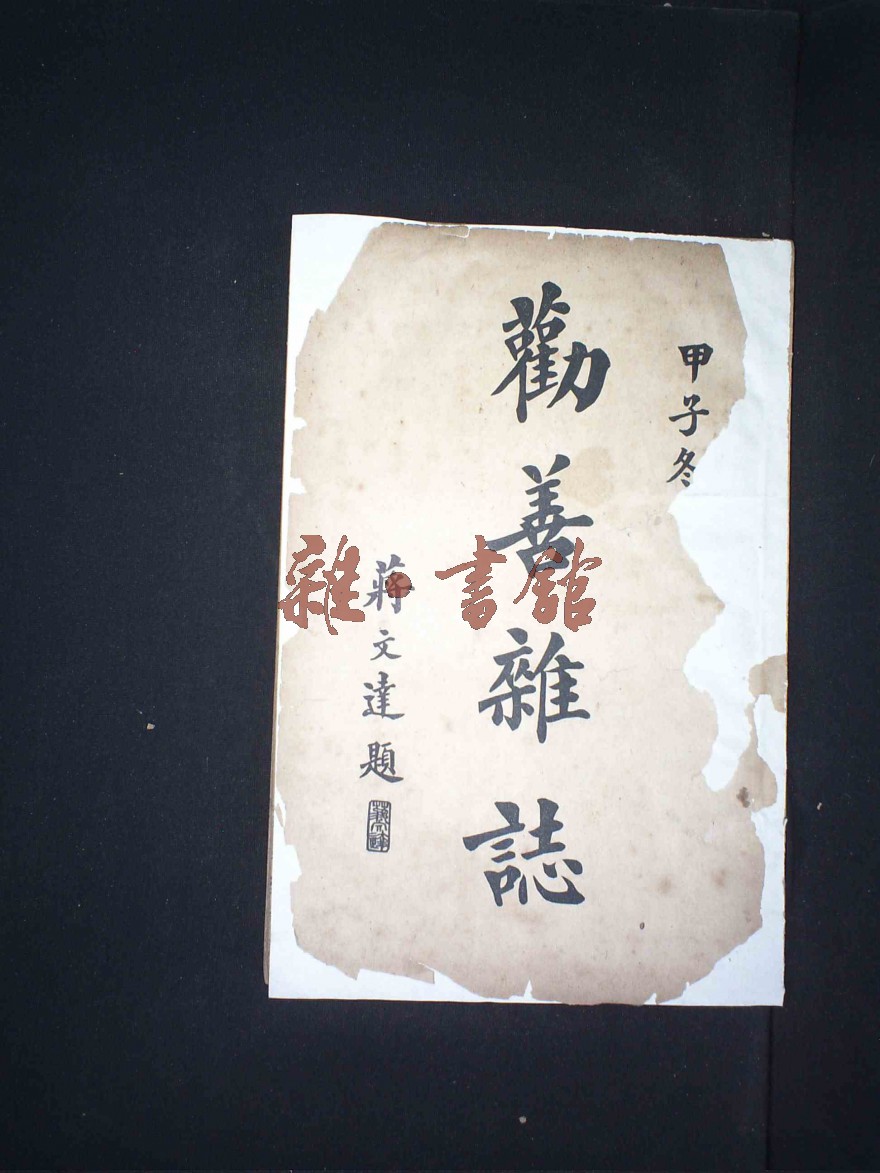 甲子冬
勸善雜誌
蔣文達題
蔣文達
雜·書館